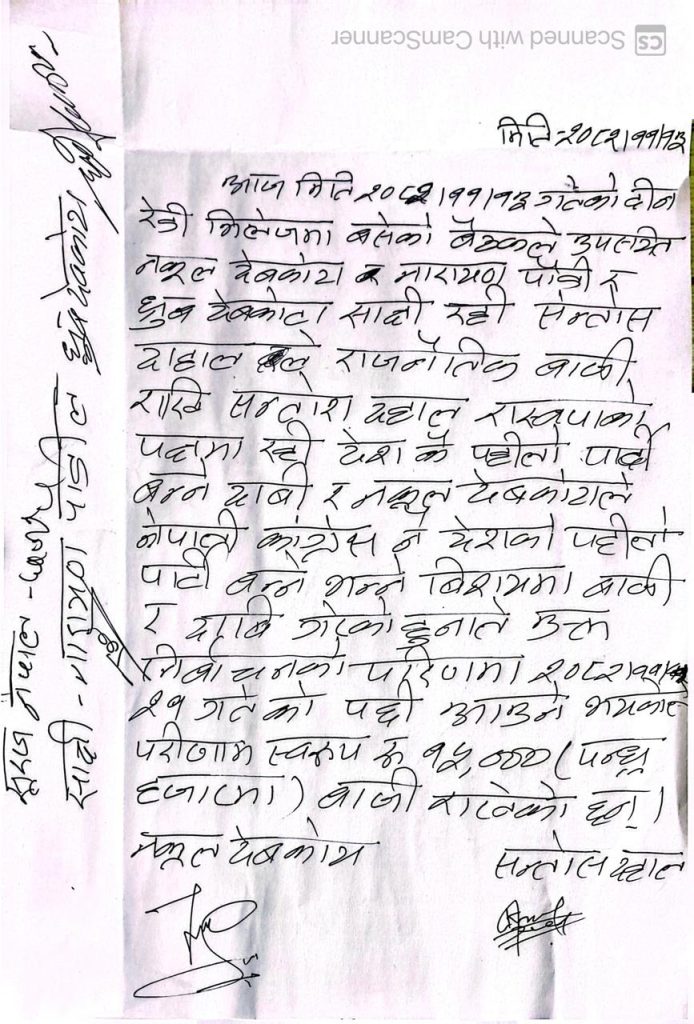 Scanned with CamScanner
मिति-२०८२।११।१३
आज मिति २०८२।११।१३ गतेको दीन
रेडी भिलेजमा बसेको बैठकले उपस्थित
नकूल देबकोटा र नारायण पौडे र
ध्रुब देबकोटा साक्षी रही सन्तोस
दाहाल ले राजनैतिक बाजी
राखि सन्तोश दहाल रास्वपाको
पक्षमा रही देश कै पहीलो पार्टी
बन्ने दाबी र नकूल देबकोटाले
नेपाली कांग्रेस नै देशको पहीलो
पार्टी बन्ने भन्ने बिशयमा बाजी
र दाबि गरेको हूनाले उक्त
निर्बाचनको परिणाम २०८२।११।
२१ गतेको पछी आउने भएकोले
परीणाम स्वरूप रू १५,००० (पन्ध्र
हजारमा) बाजी राखेको छन्।
नकूल देबकोटा
सन्तोस दहाल
साक्षी - नारायण पौडेल ध्रुब देबकोटा
सूरज नेपाल -